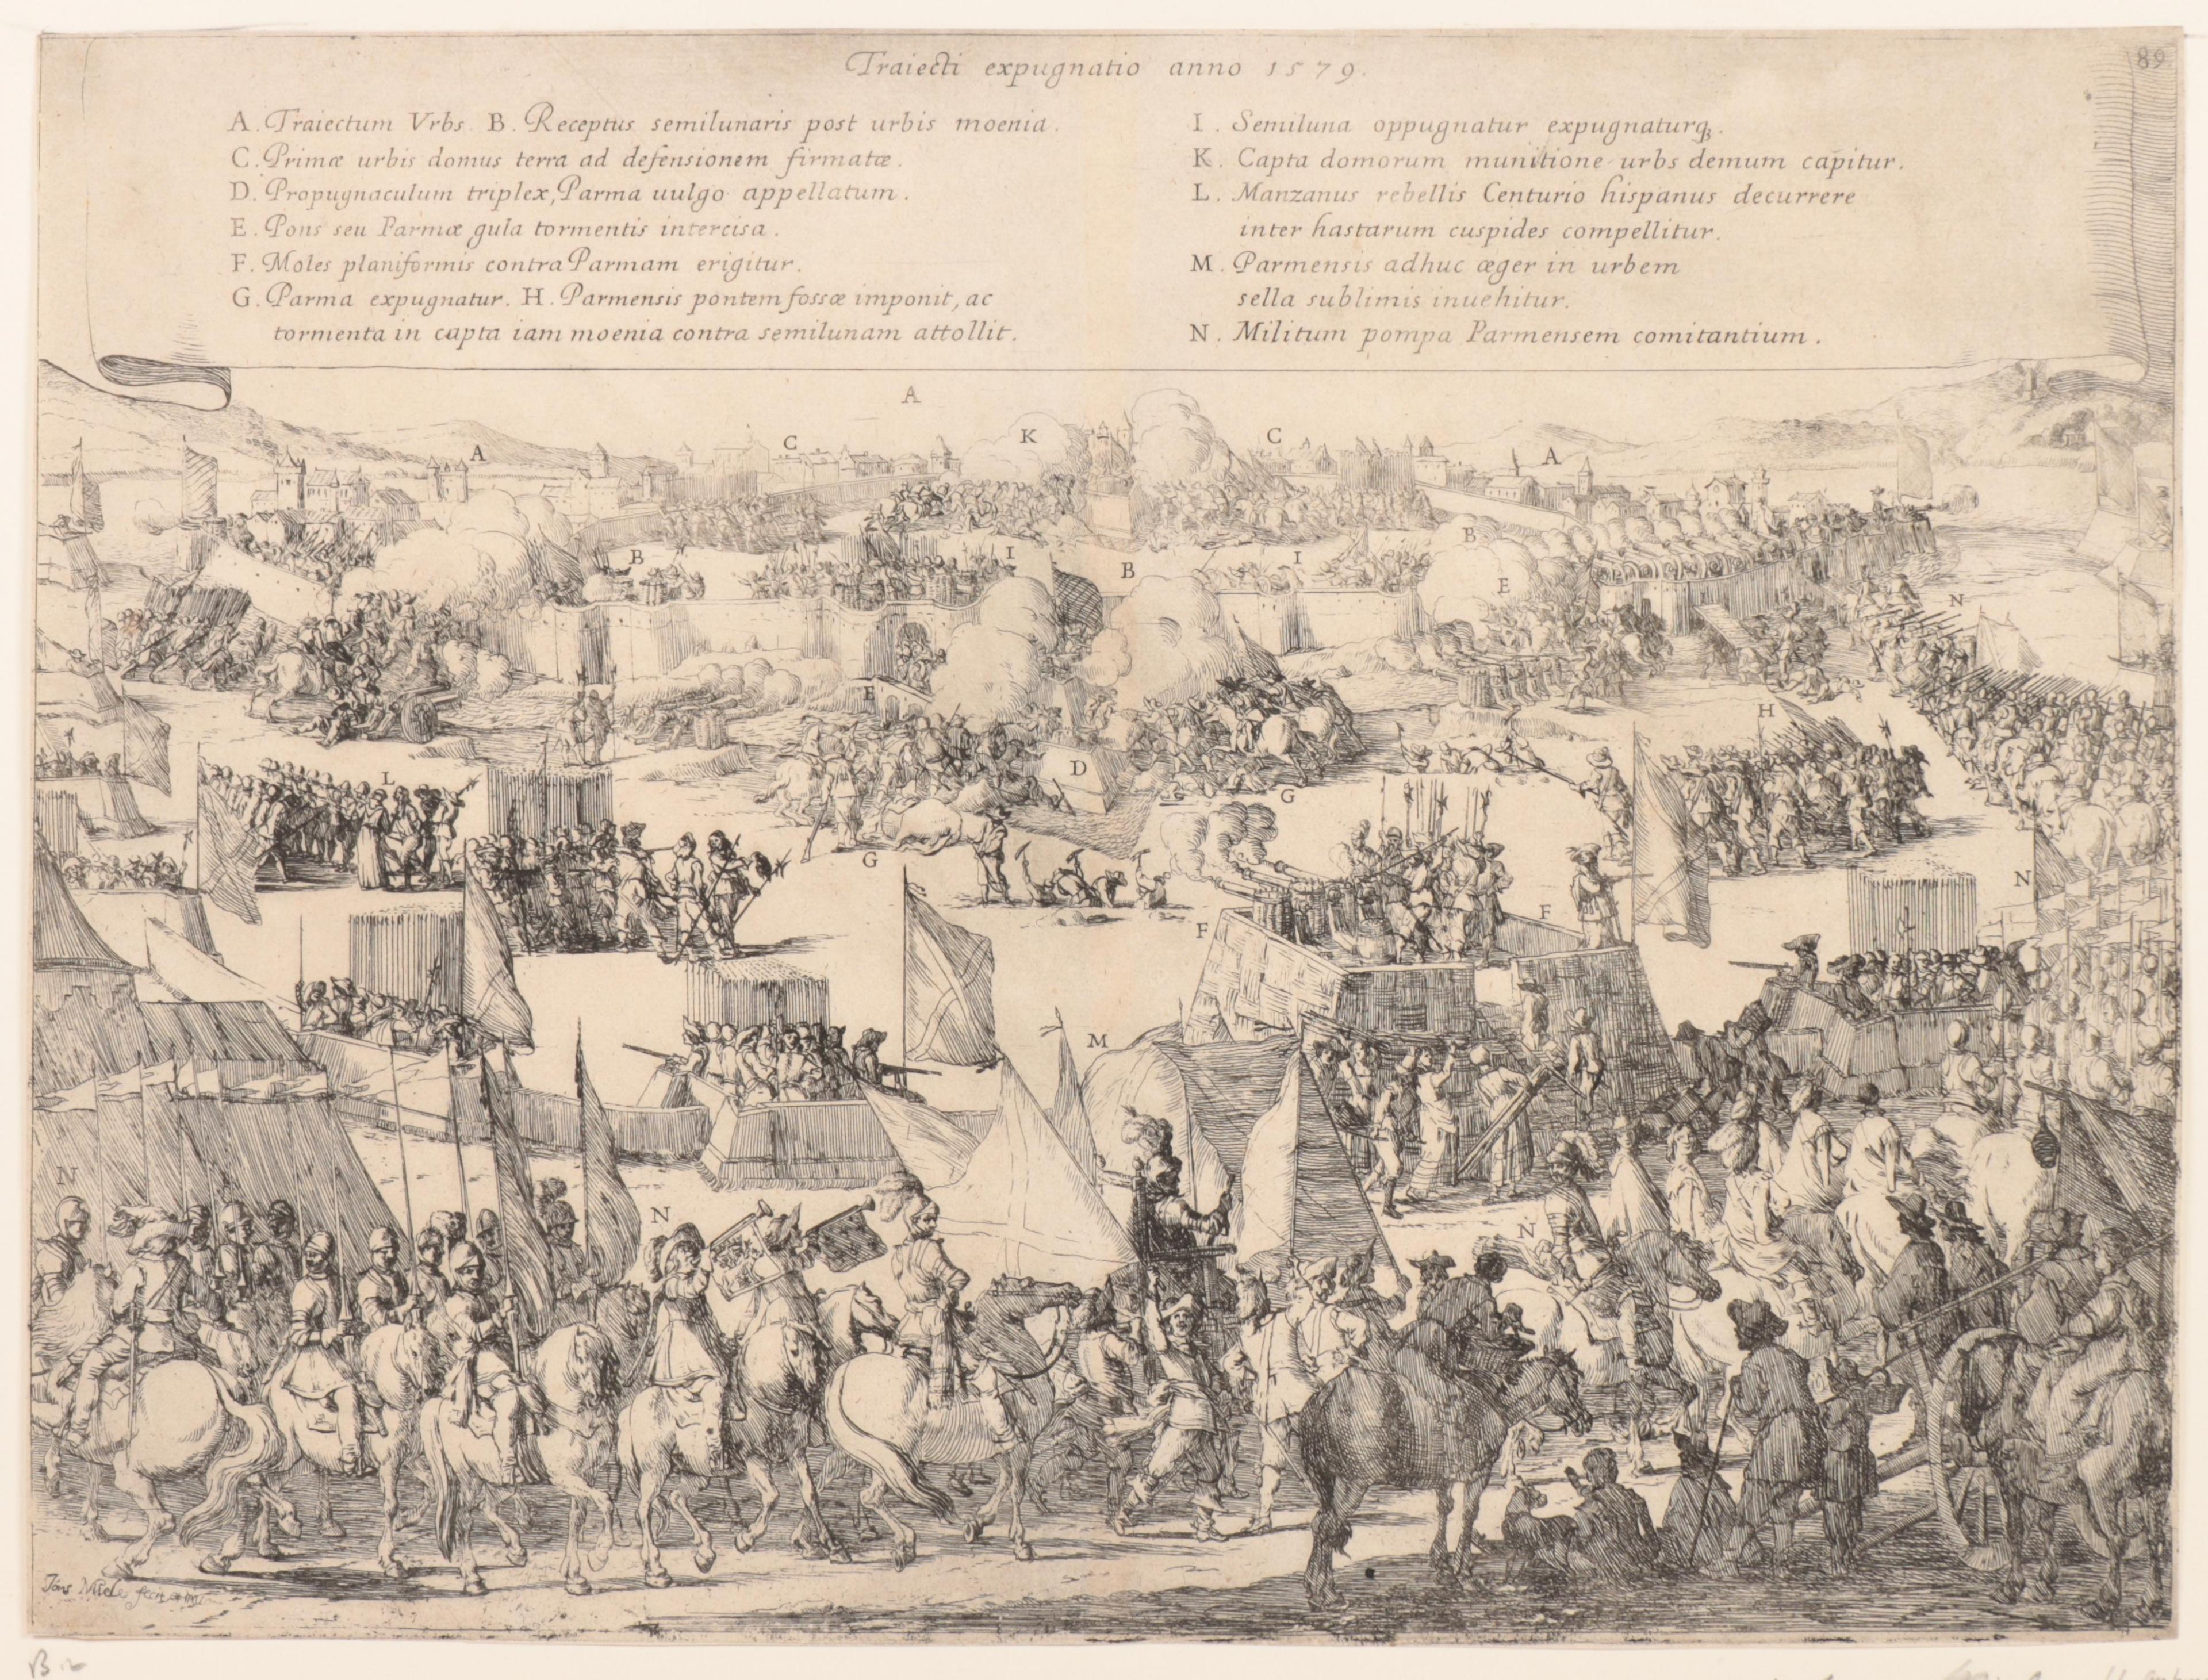 89
Traiecti expugnatio anno 1579.
A. Traiectum Vrbs. B. Receptus semilunaris post urbis moenia.
C. Primæ urbis domus terra ad defensionem firmatæ.
D. Propugnaculum triplex, Parma uulgo appellatum.
E. Pons seu Parmæ gula tormentis intercisa.
F. Moles planiformis contra Parmam erigitur.
G. Parma expugnatur. H. Parmensis pontem fossæ imponit, ac
tormenta in capta iam moenia contra semilunam attollit.
I. Semiluna oppugnatur expugnaturq₃.
K. Capta domorum munitione urbs demum capitur.
L. Manzanus rebellis Centurio hispanus decurrere
inter hastarum cuspides compellitur.
M. Parmensis adhuc æger in urbem
sella sublimis inuehitur.
N. Militum pompa Parmensem comitantium.
A
A C K C A A
B I B I B E N
E D H
L G G
N
F F
M
N N N
Miele fecit
B